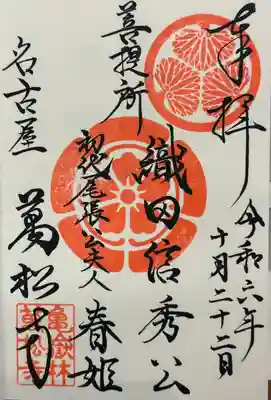 奉拝
令和六年
十月二十二日
織田信秀公
菩提所
初代尾張公夫人
春姫
名古屋
萬松寺
亀嶽林
萬松寺